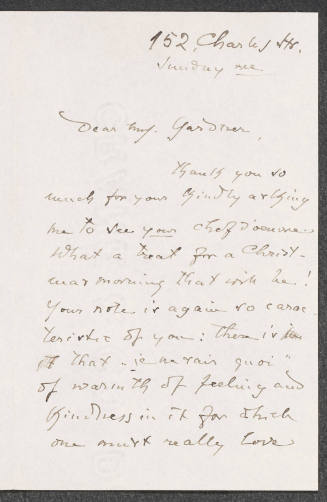 152, Charles Str.
Sunday eve
Dear Mrs. Gardiner,
Thank you so
much for your kindly asking
me to see your chef d'oeuvre
What a treat for a Christ-
mas morning that will be!
Your note is again so carac-
teristic of you: there is in
it that "je ne sais quoi"
of warmth of feeling and
kindness in it for which
one must really love